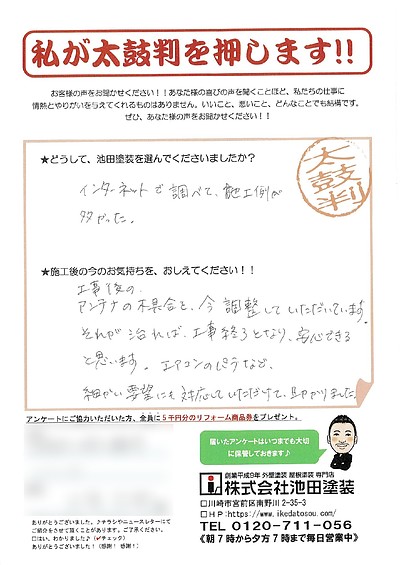 私が太鼓判を押します!!
お客様の声をお聞かせください!!あなた様の喜びの声を聞くことほど、私たちの仕事に
情熱とやりがいを与えてくれるものはありません。いいこと、悪いこと、どんなことでも結構です。
ぜひ、あなた様の声をお聞かせください!!
★どうして、池田塗装を選んでくださいましたか?
太鼓判
インターネットで調べて、施工例が
多かった。
★施工後の今のお気持ちを、おしえてください!!
工事後の、
アンテナの不具合と、今調整していただいています。
それが治れば、工事終了となり、安心できる
と思います。エアコンのビラなど、
細かい要望にも対応していただけて、助かりました。
アンケートにご協力いただいた方、全員に5千円分のリフォーム商品券をプレゼント。
届いたアンケートはいつまでも大切
に保管しておきます♪
創業平成9年 外壁塗装 屋根塗装 専門店
株式会社池田塗装
□川崎市宮前区南野川2-35-3
□HP:https://www.ikedatosou.com/
TEL 0120-711-056
《朝7時から夕方7時まで毎日営業中》
ありがとうございました。♪チラシやニュースレターにて
ご紹介させて頂くことがあります。ご了承ください。
□はい。わかりました♪(✓チェック)
ありがとうございました!(感謝!感謝!)